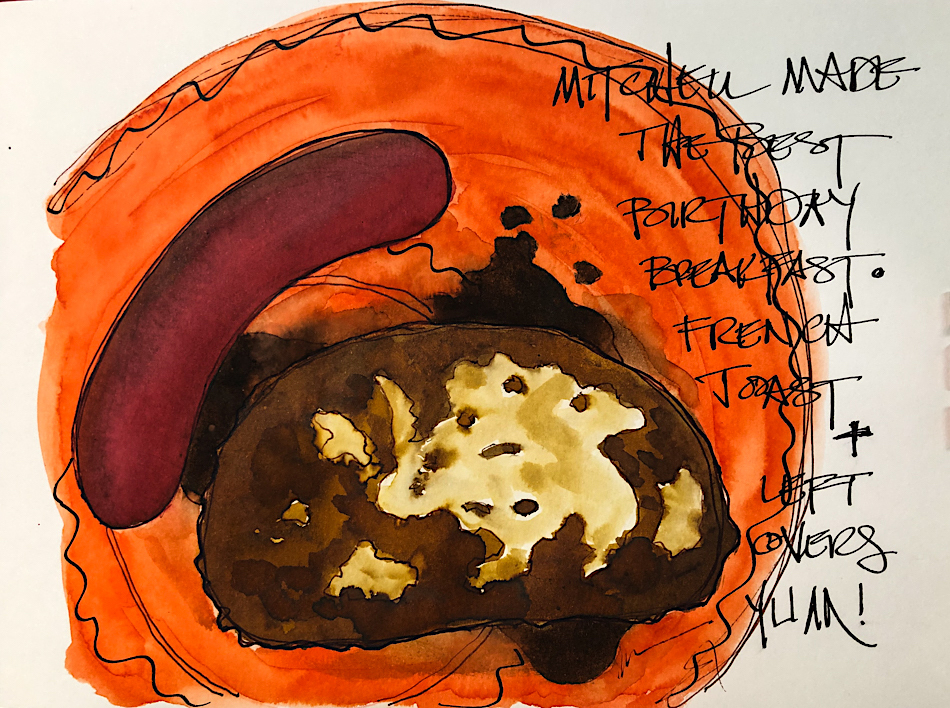 MITCHELL MADE
THE BEST
BIRTHDAY
BREAKFAST.
FRENCH
TOAST
+
LEFT
OVERS
YUM!